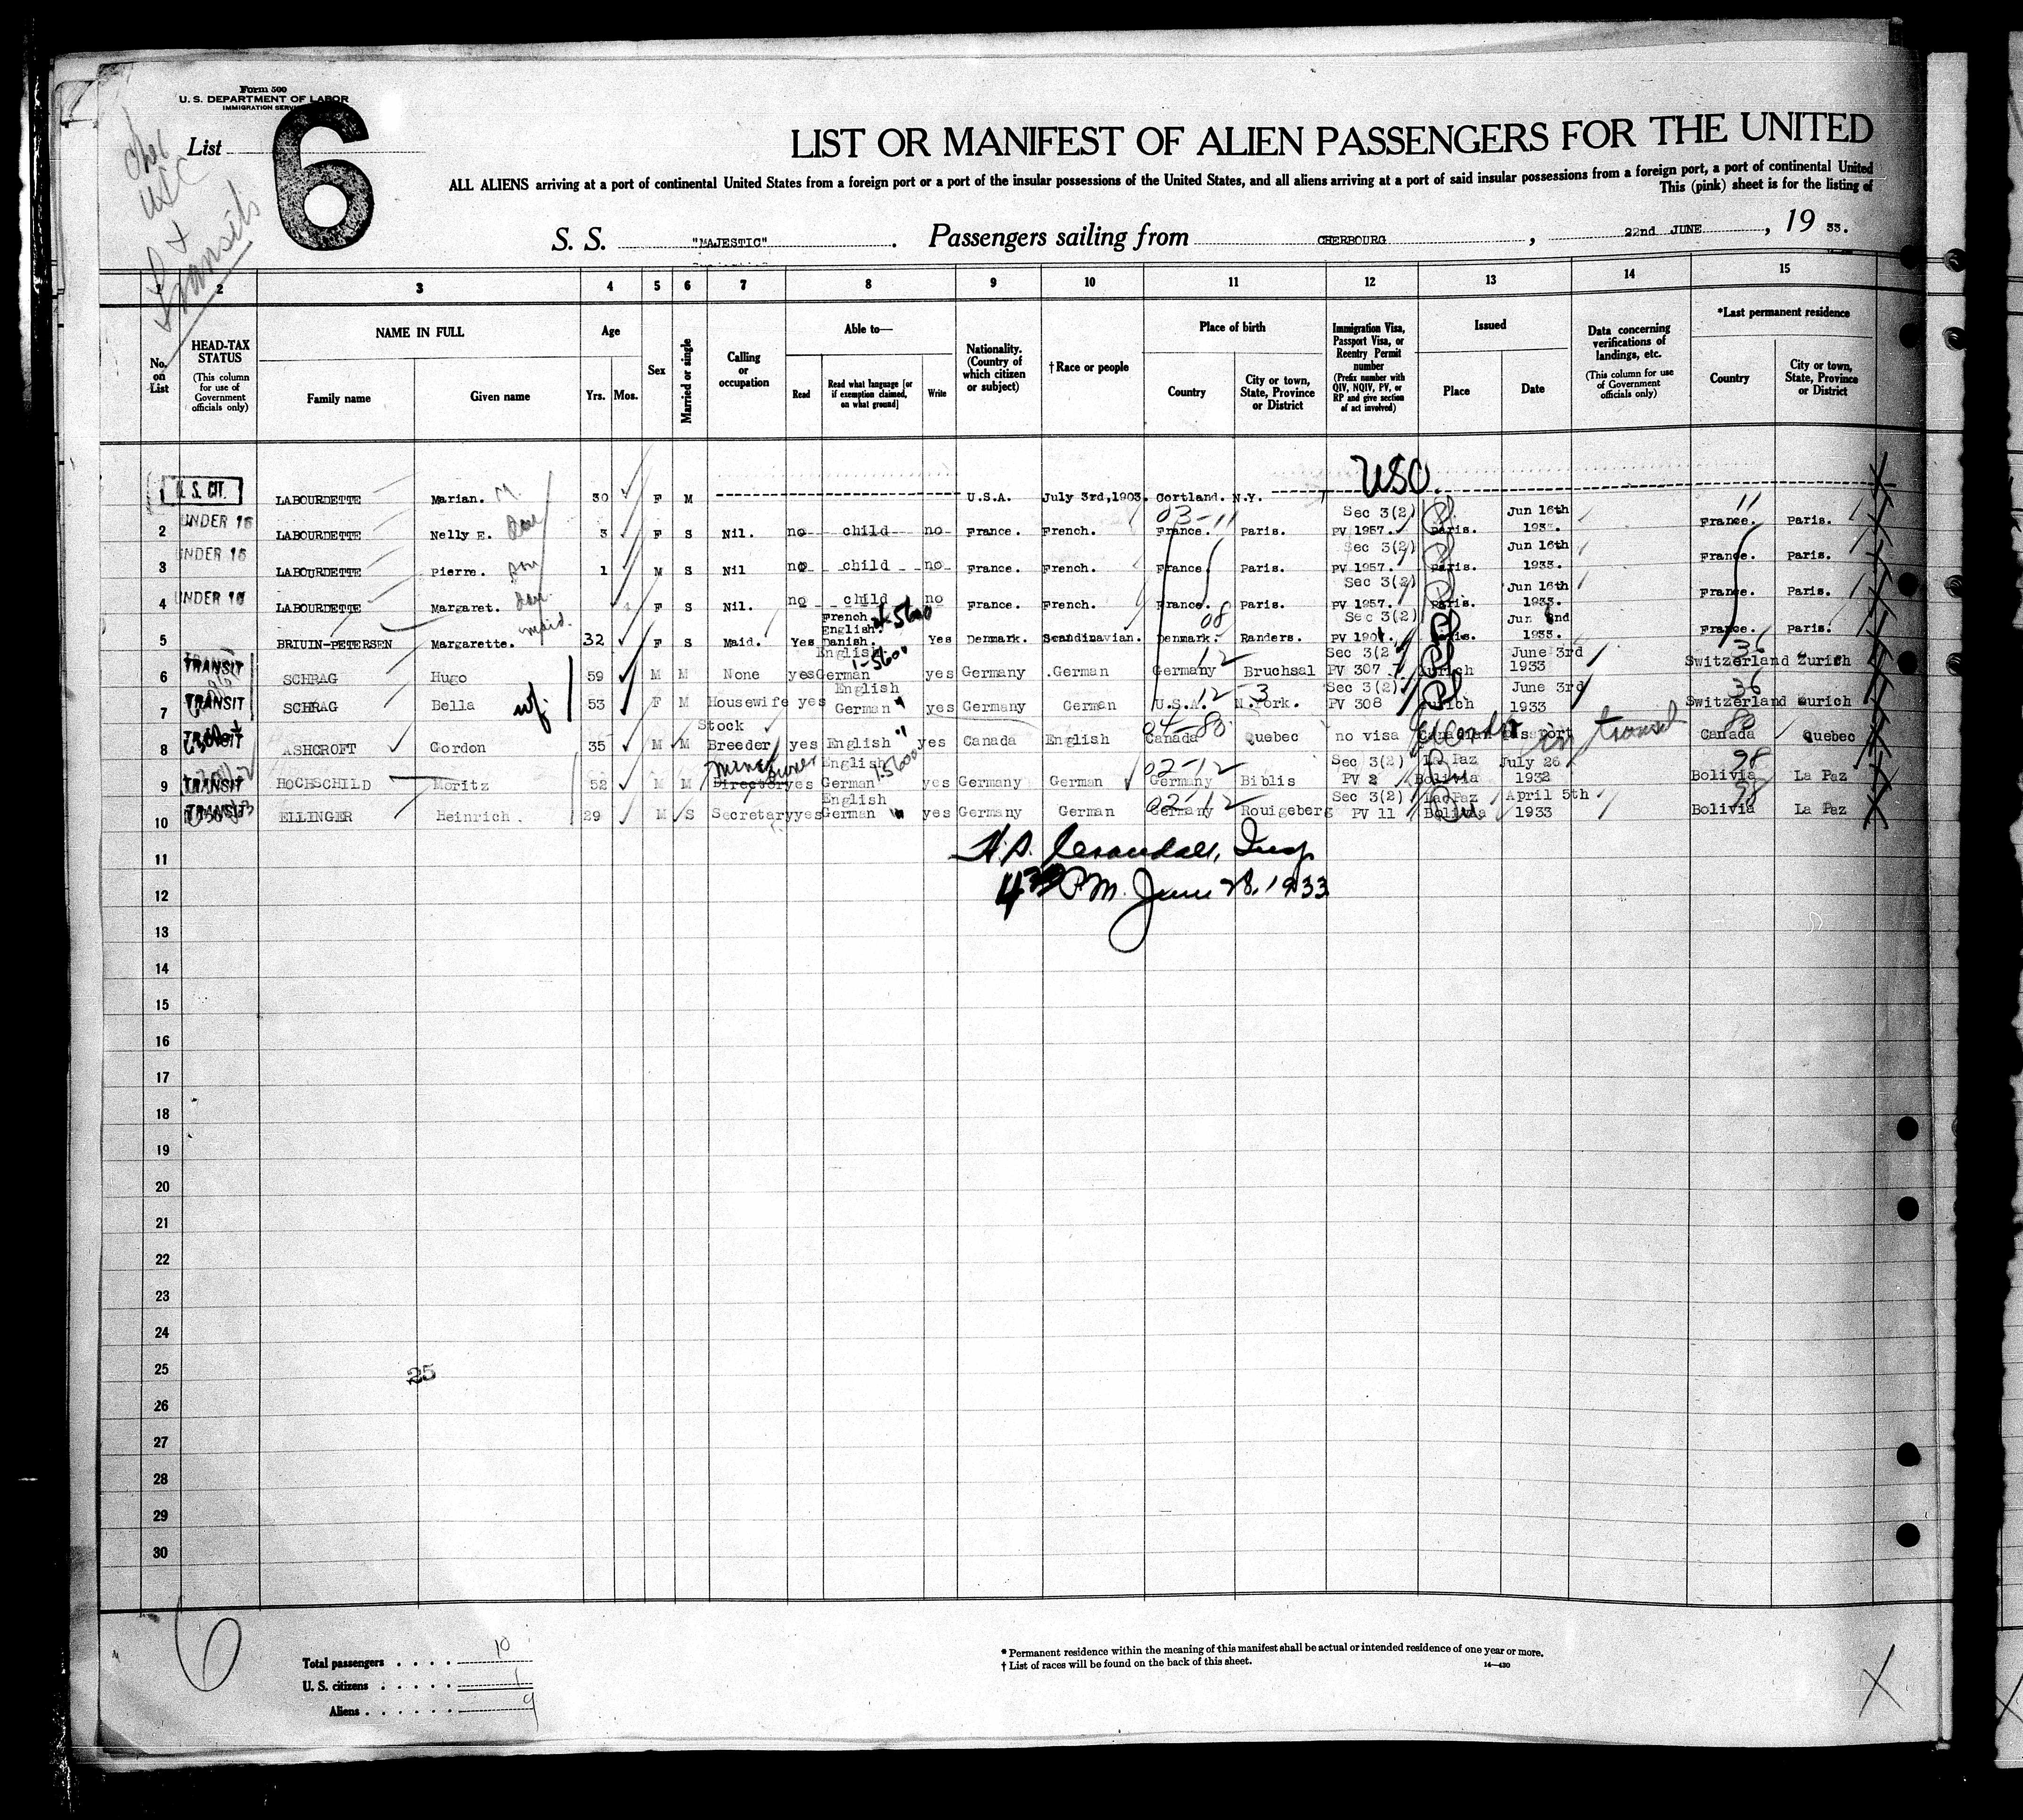 Form 500
U. S. DEPARTMENT OF LABOR
IMMIGRATION SERVICE
List 6
LIST OR MANIFEST OF ALIEN PASSENGERS FOR THE UNITED
ALL ALIENS arriving at a port of continental United States from a foreign port or a port of the insular possessions of the United States, and all aliens arriving at a port of said insular possessions from a foreign port, a port of continental United
This (pink) sheet is for the listing of
USC
+
Transits
S. S. "MAJESTIC". Passengers sailing from CHERBOURG, 22nd JUNE, 19 33.
1 2 3 4 5 6 7 8 9 10 11 12 13 14 15
No. on List
HEAD-TAX STATUS
(This column for use of Government officials only)
NAME IN FULL
Family name
Given name
Age
Yrs. Mos.
Sex
Married or single
Calling or occupation
Able to—
Read
Read what language [or if exemption claimed, on what ground]
Write
Nationality. (Country of which citizen or subject)
†Race or people
Place of birth
Country
City or town, State, Province or District
Immigration Visa, Passport Visa, or Reentry Permit number
(Prefix number with QIV, NQIV, PV, or RP and give section of act involved)
Issued
Place
Date
Data concerning verifications of landings, etc.
(This column for use of Government officials only)
*Last permanent residence
Country
City or town, State, Province or District
U. S. CIT. LABOURDETTE Marian. M. 30 F M U.S.A. July 3rd,1903. Cortland. N.Y. USC. 11
2 UNDER 16 LABOURDETTE Nelly E. 3 F S Nil. no child no France. French. 03-11 France. Paris. Sec 3(2) PV 1957. Paris. Jun 16th 1933. France. Paris.
3 UNDER 16 LABOURDETTE Pierre. 1 M S Nil no child no France. French. France. Paris. Sec 3(2) PV 1957. Paris. Jun 16th 1933. France. Paris.
4 UNDER 16 LABOURDETTE Margaret. 4 F S Nil. no child no France. French. France. Paris. Sec 3(2) PV 1957. Paris. Jun 16th 1933. France. Paris.
5 BRIUIN-PETERSEN Margarette. maid. 32 F S Maid. Yes French. English. Danish. Yes Denmark. Scandinavian. 08 Denmark. Randers. Sec 3(2) PV 1901. Paris. Jun 2nd 1933. France. Paris.
6 TRANSIT SCHRAG Hugo 59 M M None yes English German 1-5600 yes Germany German 12 Germany Bruchsal Sec 3(2 PV 307 Zurich June 3rd 1933 36 Switzerland Zurich
7 TRANSIT SCHRAG Bella wf. 53 F M Housewife yes English German " yes Germany German 12-3 U.S.A. N.York. Sec 3(2) PV 308 Zurich June 3rd 1933 36 Switzerland Zurich
8 TRANSIT ASHCROFT Gordon 35 M M Stock Breeder yes English " yes Canada English 04-80 Canada Quebec no visa Canadian passport in transit 80 Canada Quebec
9 TRANSIT HOCHSCHILD Moritz 52 M M Mine owner Director yes English German 1-5600 yes Germany German 02-12 Germany Biblis Sec 3(2) PV 2 La Paz Bolivia July 26 1932 98 Bolivia La Paz
10 TRANSIT ELLINGER Heinrich. 29 M S Secretary yes English German " yes Germany German 02-12 Germany Rouigeberg Sec 3(2) PV 11 La Paz Bolivia April 5th 1933 98 Bolivia La Paz
11 Insp
12 4 30 P.M. June 28, 1933
13
14
15
16
17
18
19
20
21
22
23
24
25 25
26
27
28
29
30
6
Total passengers . . . . 10
U. S. citizens . . . . . 1
Aliens . . . . . . 9
* Permanent residence within the meaning of this manifest shall be actual or intended residence of one year or more.
† List of races will be found on the back of this sheet.
14—430